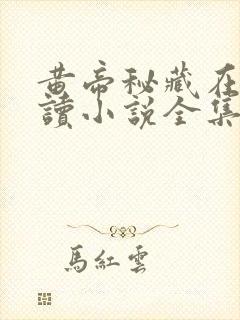 黄帝秘藏在
讀小説全集
馬紅雲